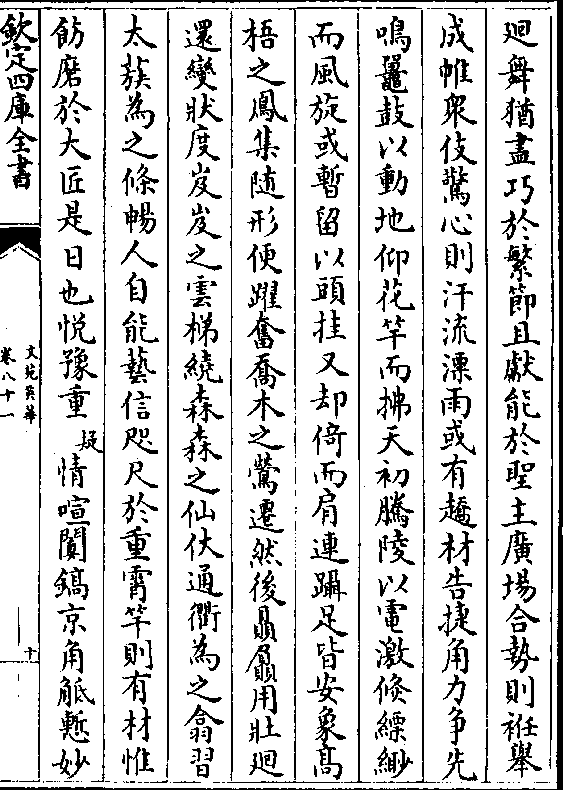 廻舞猶盡巧於繁節且獻能於聖主廣場合勢則袵舉
成帷衆伎驚心則汗流漂雨或有趫材告捷角力争先
鳴鼉鼓以動地仰花竿而拂天初騰陵以電激倐縹緲
而風旋或暫留以頭挂又却倚而肩連躡足皆安象高
梧之鳳集随形便躍奮喬木之鶯遷然後贔屭用壯廻
還變狀度岌岌之雲梯繞森森之仙仗通衢為之翕習
太蔟為之條暢人自能藝信咫尺於重霄竿則有材惟
飭磨於大匠是日也悦豫重疑情喧闐鎬京角觝慙妙
欽定四庫全書
文苑英華
卷八十一
十